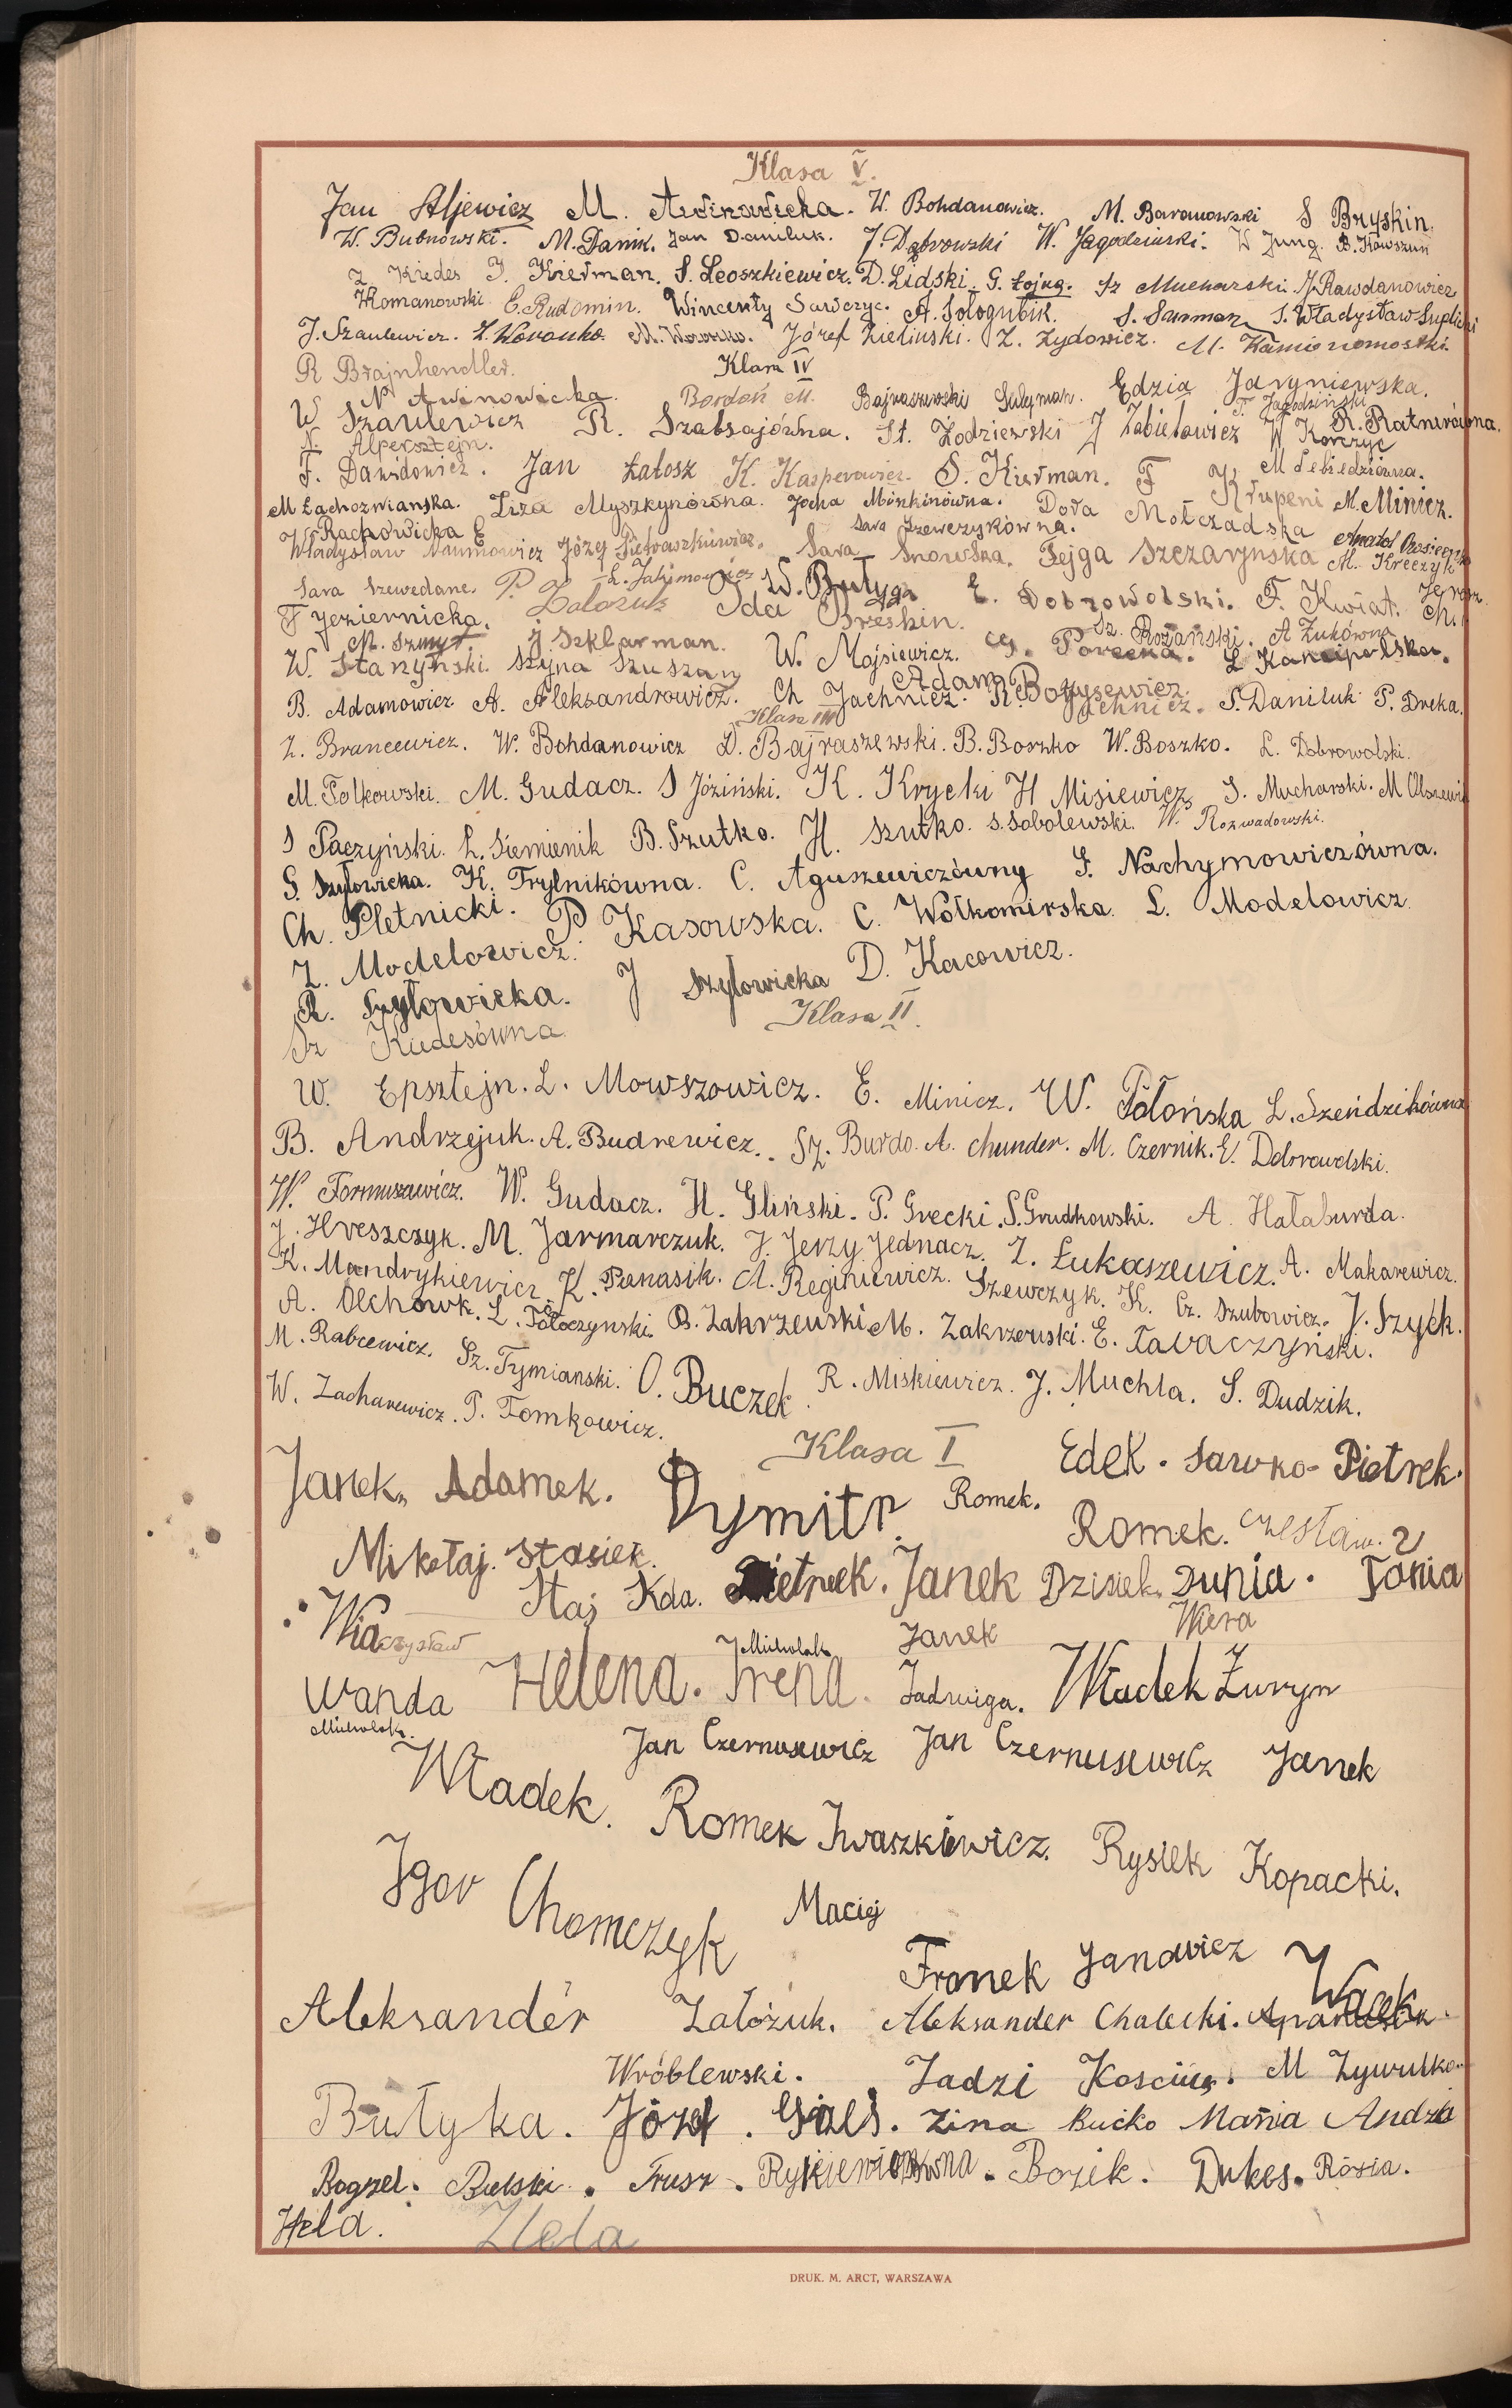 Klasa V.
Jan Aljewicz M. Awinowicka. W. Bohdanowicz. M. Baranowski S Bryskin.
W. Bubnowski. M. Danik. Jan Daniluk. J. Dąbrowski W. Jagodziński. W Jung. B. Kowszun
Z Kiedes J. Kierman. S. Leoszkiewicz. D. Lidski. G. Łojng. Sz Mucharski. J. Rawdanowicz
Romanowski E. Rudomin. Wincenty Sawczyc. A. Sołogubik. S. Surmon S. Władysław
J. Szaulewicz. M. Woroszko. Józef Zieliński. Z. Żydowicz. M.
R Brajnhendler. Klasa IV
N Awinowicka. Bordoń M. Bajraszewski Sulyman. Edzia Jaryniewska.
T. Jagodziński
W Szaulewicz R. Szabsajówna. St. Żodziewski J Zabiełowicz W Korczyc R. Ratnerówna.
N. Alpersztejn.
F. Dawidowicz. Jan Łatosz K. Kasperowicz. S. Kierman. F Krupeni M Lebiedziówna.
M Łachozwianska. Liza Myszkynówna. Jocha Miszkinówna. Dora Mołczadska M. Minicz.
Rachowicka E Sara Szewczykówna. Anatol
Władysław Naumowicz Józef Pietraszkiewicz. Sara Snowska. Fejga Szczarynska M. Kreczyk
Sara Szwedane. P. Załozuk L. Jakimowicz W. Butyga E. Dobrowolski. F. Kwiat.
F Jeziernicka. Ida Breskin. Sz. Rożański. A Żukówna Ch.
M. Szmyt. J Szklarman. W. Mojsiewicz. G. Porecka. L Kancipolska.
W. Stanyński. Szyna Szuszan Adam Borysewicz.
B. Adamowicz A. Aleksandrowicz. Ch Jachnicz. R. Jachnicz. S. Daniluk P. Dreka.
Klasa III
Z. Brancewicz. W. Bohdanowicz D. Bajraszewski. B. Boszko W. Boszko. L. Dobrowolski.
M. Folkowski. M. Gudacz. S Józiński. K. Krycki H Misiewicz S. Mucharski. M
S Paczyński. L. Siemienik B. Szutko. H. Szutko. S. Sobolewski. W. Rozwadowski.
S. Szyłowicka. K. Frylnikówna. C. Aguszewiczówny S. Nachymowiczówna.
Ch. Pletnicki. P Kasowska. C. Wołkomirska. L. Modelowicz.
Z. Modelowicz.
R. Szyłowicka. J Szyłowicka D. Kacowicz.
Sz Kiedesówna Klasa II.
W. Epsztejn. L. Mowszowicz. E. Minicz. W. Połońska L. Szeńdzikówna
B. Andrzejuk. A. Budrewicz. Sz. Burdo. A. Chunder. M. Czernik. E. Dobrowolski.
W. Formusewicz. W. Gudacz. H. Gliński. P. Grecki. S. Grudkowski. A. Hałaburda.
J. Hreszczyk. M. Jarmarczuk. J. Jerzy Jednacz. Z. Łukaszewicz. A. Makarewicz.
K. Mandrykiewicz. K. Panasik. A. Reginiewicz. Szewczyk. K. Cz. Szubowicz. J. Szyck.
A. Olchowk. L. Tołoczynski. B. Zakrzewski M. Zakrzewski. E. Tawaczyński.
M. Rabcewicz. Sz. Tymianski. O. Buczek R. Miskiewicz. J. Muchla. S. Dudzik.
W. Zacharewicz. P. Tomkowicz.
Klasa I
Janek. Adamek. Dymitr. Romek. Edek. Sawko. Pietrek.
Mikołaj. Stasiek. Romek. Czesław.
Staj Kda. Pietruek. Janek Dzisiek. Dunia. Tonia
Wiaczysław Michalak Janek Wiera
Wanda Helena. Irena. Jadwiga. Władek Żuryn
Michalak.
Jan Czernusewicz Jan Czernusewicz Janek
Władek. Romek Iwaszkiewicz. Rysiek Kopacki.
Igor Chomczyk Maciej
Franek Janowicz Wacek
Aleksander Załozuk. Aleksander Chalecki.
Wróblewski. Jadzi Kosciug. M Żywutko.
Butyka. Józef. Giels. Zina Bućko Mania Andzia
Bogzel. Bielski. Trusz. Bozik. Dukes. Rózia.
Hela. Hela
DRUK. M. ARCT, WARSZAWA